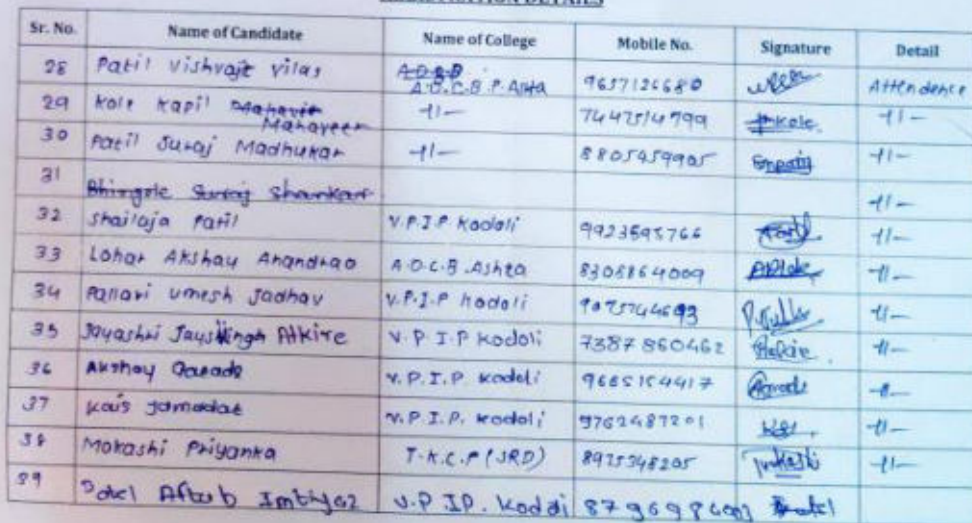 Sr. No. Name of Candidate Name of College Mobile No. Signature Detail
28 Patil Vishvajit Vilas A.D.C.B.P. Ashta 9657126680 Attendence
29 Kole Kapil Mahaveer -11- 7447514799 Kole -11-
30 Patil Suraj Madhukar -11- 8805459905 -11-
31 Bhingole Suraj Shankar -11-
32 Shailaja Patil V.P.I.P Kodoli 9923595766 -11-
33 Lohar Akshay Anandrao A.D.C.B. Ashta 8308864009 -11-
34 Pallavi Umesh Jadhav V.P.I.P Kodoli -11-
35 Jayashri Jaysingh Atkire V.P.I.P Kodoli 7387860462 -11-
36 Akshay Garade V.P.I.P. Kodoli 9665154417 -11-
37 Kais Jamadar V.P.I.P. Kodoli 9762487201 -11-
38 Mokashi Priyanka T.K.C.P (JRD) 8975348205 Mokashi -11-
39 Patel Aftab Imtiyaz V.P.IP. Kodoli Patel